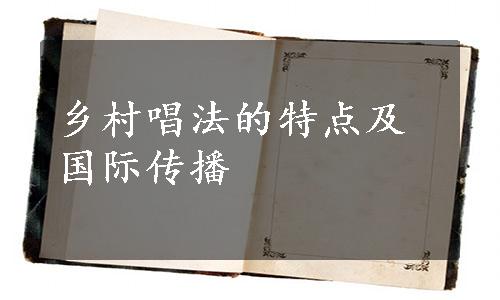 乡村唱法的特点及
国际传播